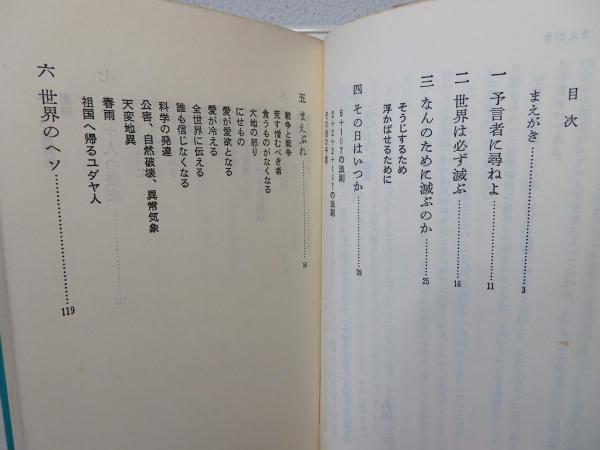 目次
まえがき……………3
一 予言者に尋ねよ……………11
二 世界は必ず滅ぶ……………16
三 なんのために滅ぶのか……………25
そうじするため
浮かばせるために
四 その日はいつか……………39
6+1=7の法則
2+2+2+1=7の法則
五 まえぶれ……………54
戦争と戦争
荒す憎むべき者
食うものがなくなる
大地の怒り
にせもの
愛が愛欲となる
愛が冷える
全世界に伝える
誰も信じなくなる
科学の発達
公害、自然破壊、異常気象
天変地異
春雨
祖国へ帰るユダヤ人
六 世界のヘソ……………119